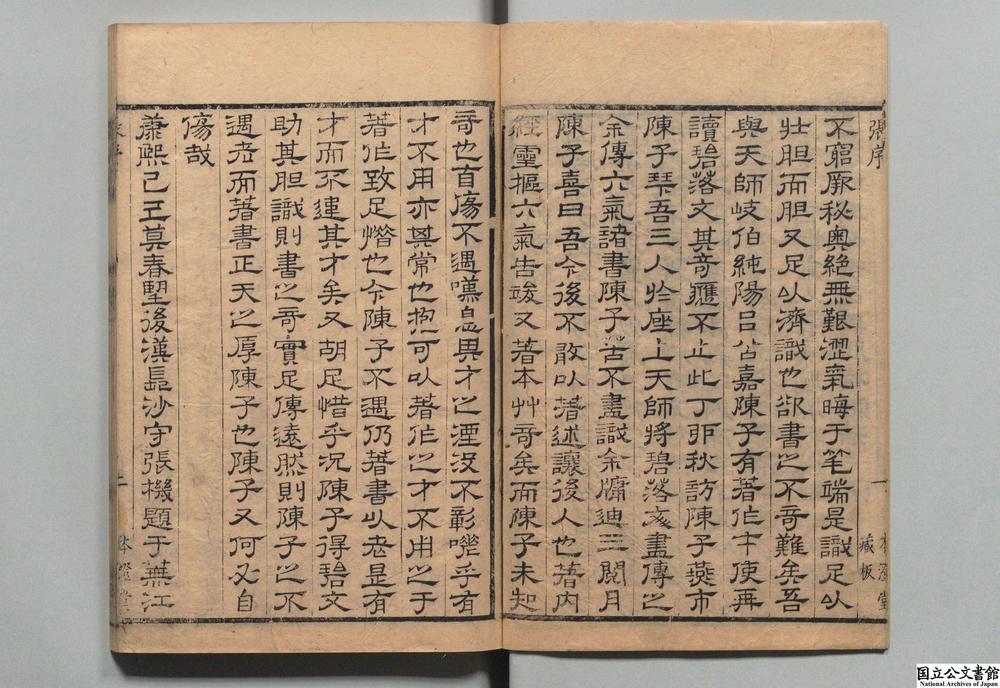 張序
一
本澄堂
藏板
不窮厥秘奥絶無艱澀氣晦于笔端是識足以
壯胆而胆又足以濟識也欲書之不奇難矣吾
與天師岐伯純陽吕公嘉陳子有著作才使再
讀碧落文其奇應不止此丁卯秋訪陳子燕市
陳子琴吾三人於座上天師將碧落文盡傳之
余傳六氣諸書陳子苦不盡識余牖迪三閲月
陳子喜曰吾今後不敢以著述讓後人也著内
經靈樞六氣告竣又著本艸奇矣而陳子未知
奇也自傷不遇嘆息異才之湮没不彰嗟乎有
才不用亦其常也抱可以著作之才不用之于
著作致足憯也今陳子不遇仍著書以老是有
才而不違其才矣又胡足惜乎况陳子得碧文
助其胆識則書之奇實足傳遠然則陳子之不
遇老而著書正天之厚陳子也陳子又何必自
傷哉
康熙己巳莫春望後漢長沙守張機題于蕪江
二
本澄堂
国立公文書館
National Archives of Japan